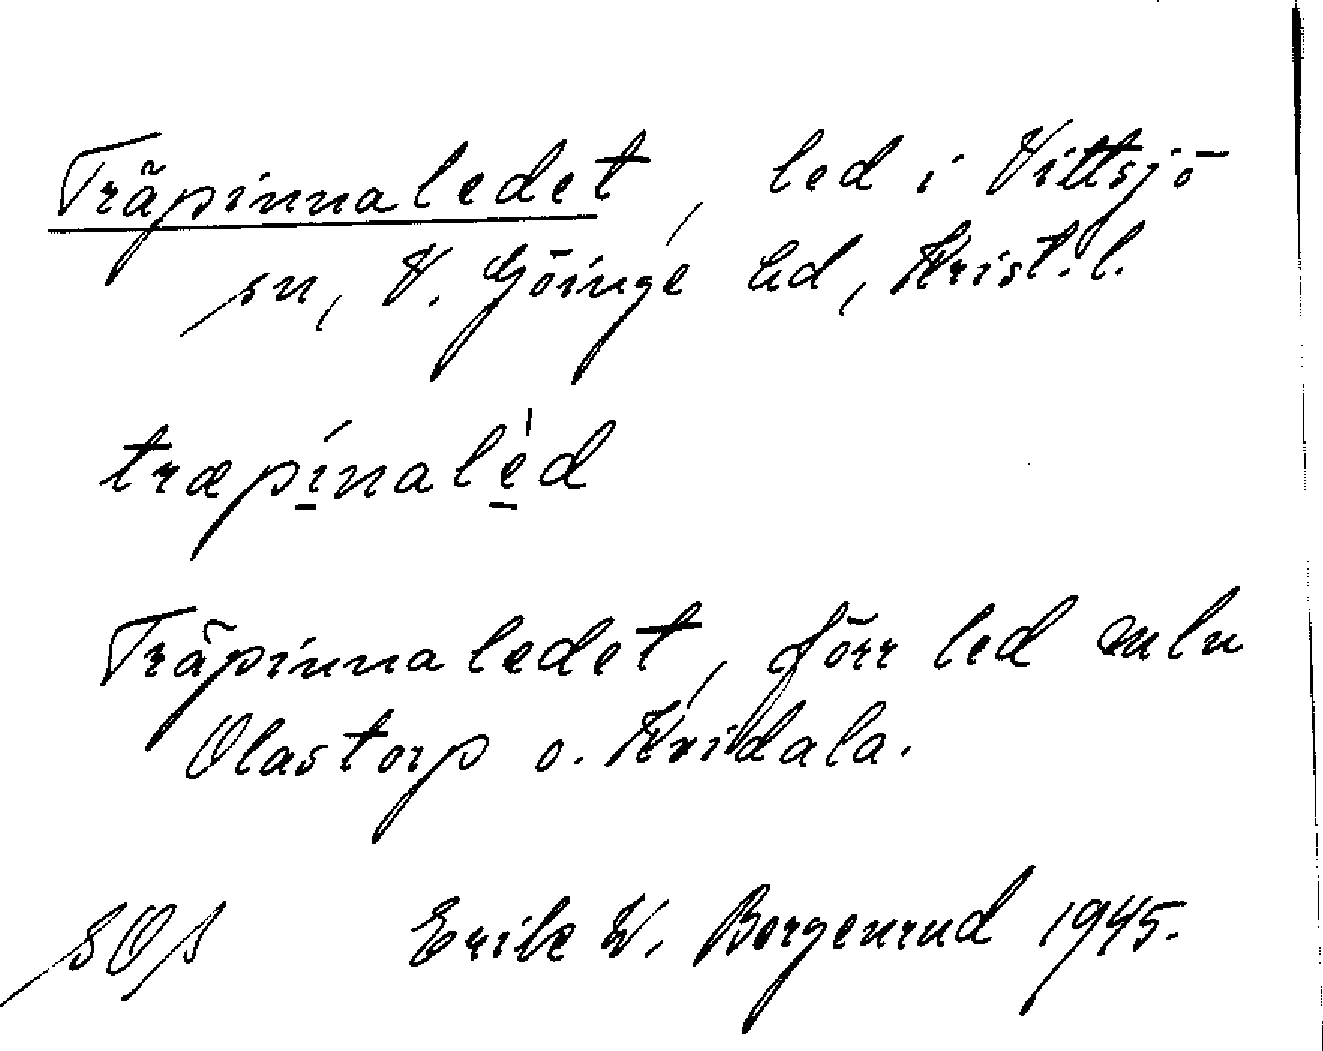 Träpinnaledet, led i Vittsjö
sn, V. Göinge hd, Krist. l.
træpínalèd
Träpinnaledet, förr led mln
Olastorp o. Kvidala.
SOS Erik W. Borgenrud 1945.